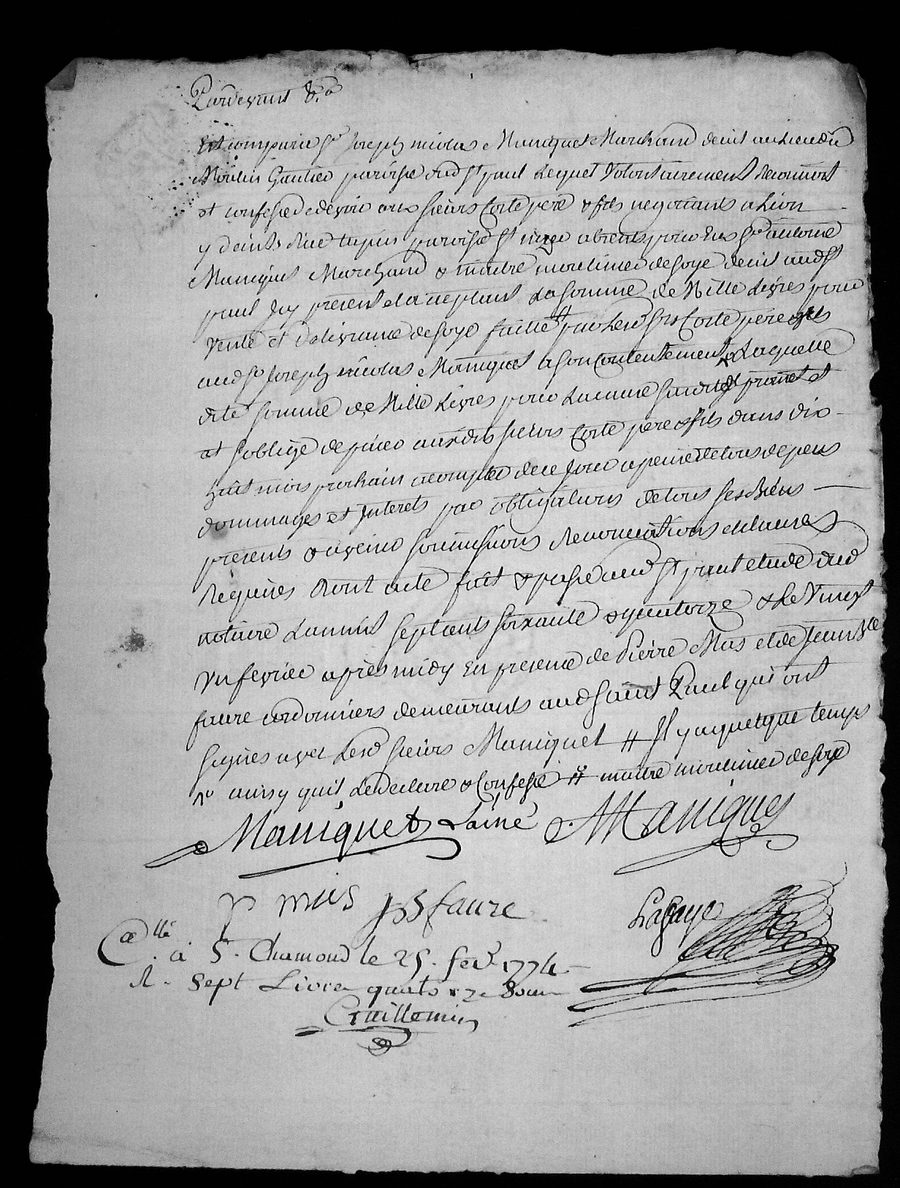 Pardevant &.a
Est comparu Sr. Joseph nicolas Maniquet Marchand de
Moulin Gautier paroisse dud St paul Lequel Volontairement Reconnoit
et confesse devoir aux sieurs Corte pere & fils negotiants a Lion
y dem.ts Rüe tupin paroisse St nizier absents pour Eux Sr. antoine
Maniquet Marchand & maitre moulinier de soye audt St
paul Icy present et acceptant La somme de Mille Livres pour
vente et delivrance de soye faitte par Lesd Srs Corte pere & fils
aud Sr. Joseph nicolas Maniquet a son Contentement Laquelle
dite somme de Mille Livres pour La cause susdite promet et
et s'oblige de paier auxdits sieurs Corte pere & fils dans dix
huit mois prochain a compter de ce jour a peine de tous depens
dommages et Interets par obligations de tous ses Biens
presents & avenir soumissions Renonciations et clauses
Requises Dont acte fait & passé aud St paul etude dud
notaire L'an mil sept cents soixante & quatorze & Le Vingt
un fevrier apres midy En presence de Pierre Mas et de Jean Bte
faure cordonniers demeurants aud Saint Paul qui ont
signés avec Lesd sieurs Maniquet # Il y a quelque temps
ainsy qu'il Le declare & Confesse # maitre moulinier de soye
Maniquet L'ainé AManiquet
p mas JBfaure Lafaye
C.llé à St. Chamond le 25. fevr. 1774
R. sept Livres quatorze sous
Guillemin